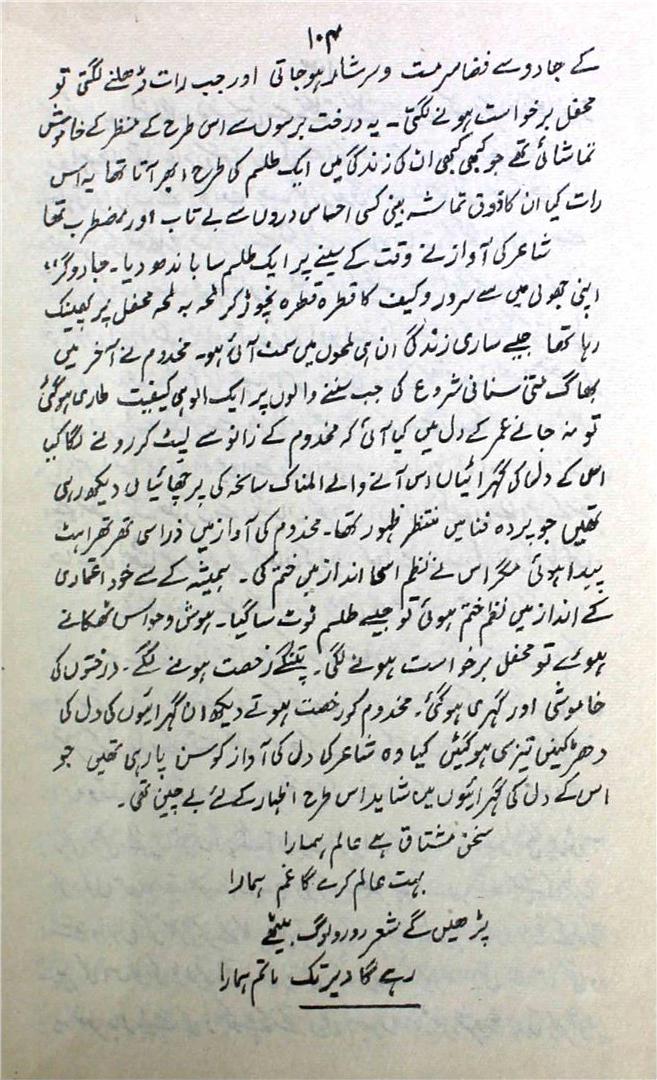 ۱۰۴
کے جادو سے فضا سرمست و سرشار ہو جاتی اور جب رات ڈھلنے لگتی تو
محفل برخواست ہونے لگتی۔ یہ درخت برسوں سے اس طرح کے منظر کے خاموش
تماشائی تھے جو کبھی کبھی ان کی زندگی میں ایک طلسم کی طرح ابھر آتا تھا یہ اس
رات کیا ان کا ذوق تماشہ بینی کسی احساس دروں سے بے تاب اور مضطرب تھا
شاعر کی آواز نے وقت کے سینے پر ایک طلسم سا باندھ دیا۔ جادوگر
اپنی جھولی میں سے سرور و کیف کا قطرہ قطرہ نچوڑ کر لمحہ بہ لمحہ محفل پر پھینک
رہا تھا جیسے ساری زندگی ان ہی لمحوں میں سمٹ آئی ہو۔ مخدوم نے آخر میں
بھاگ متی سنانی شروع کی جب سننے والوں پر ایک الوہی کیفیت طاری ہو گئی
تو نہ جانے عمر کے دل میں کیا آئی کہ مخدوم کے زانو سے لپٹ کر رونے لگا کیا
اس کے دل کی گہرائیاں اس آنے والے المناک سانحہ کی پرچھائیاں دیکھ رہی
تھیں جو پردہ فنا میں منتظر ظہور تھا۔ مخدوم کی آواز میں ذرا سی تھرتھراہٹ
پیدا ہوئی مگر اس نے نظم اسی انداز میں ختم کی۔ ہمیشہ کے سے خود اعتمادی
کے انداز میں نظم ختم ہوئی تو جیسے طلسم ٹوٹ سا گیا۔ ہوش و حواس ٹھکانے
ہوئے تو محفل برخواست ہونے لگی۔ پتنگے رخصت ہونے لگے۔ درختوں کی
خاموشی اور گہری ہو گئی۔ مخدوم کو رخصت ہوتے دیکھ ان گہرائیوں کی دل کی
دھڑکنیں تیزی ہو گئیں کیا وہ شاعر کی دل کی آواز کو سن پا رہی تھیں جو
اس کے دل کی گہرائیوں میں شاید اس طرح اظہار کے لئے بے چین تھی۔
سخن مشتاق ہے عالم ہمارا
بہت عالم کرے گا غم ہمارا
پڑھیں گے شعر رو رو لوگ بیٹھے
رہے گا دیر تک ماتم ہمارا